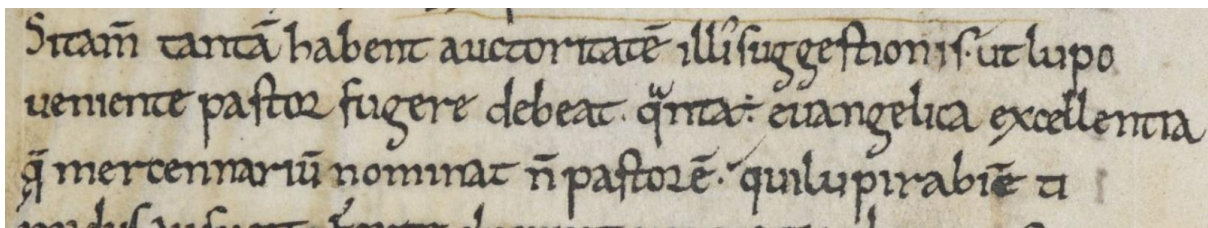 Si tam̄ tantā habent auctoritatē illi᾽ suggestionis · ut lupo
ueniente pastor fugere debeat · qͣnta ÷ euangelica excellentia
q̄ mercennariū nominat n̄ pastorē · qui lupi rabiē ti